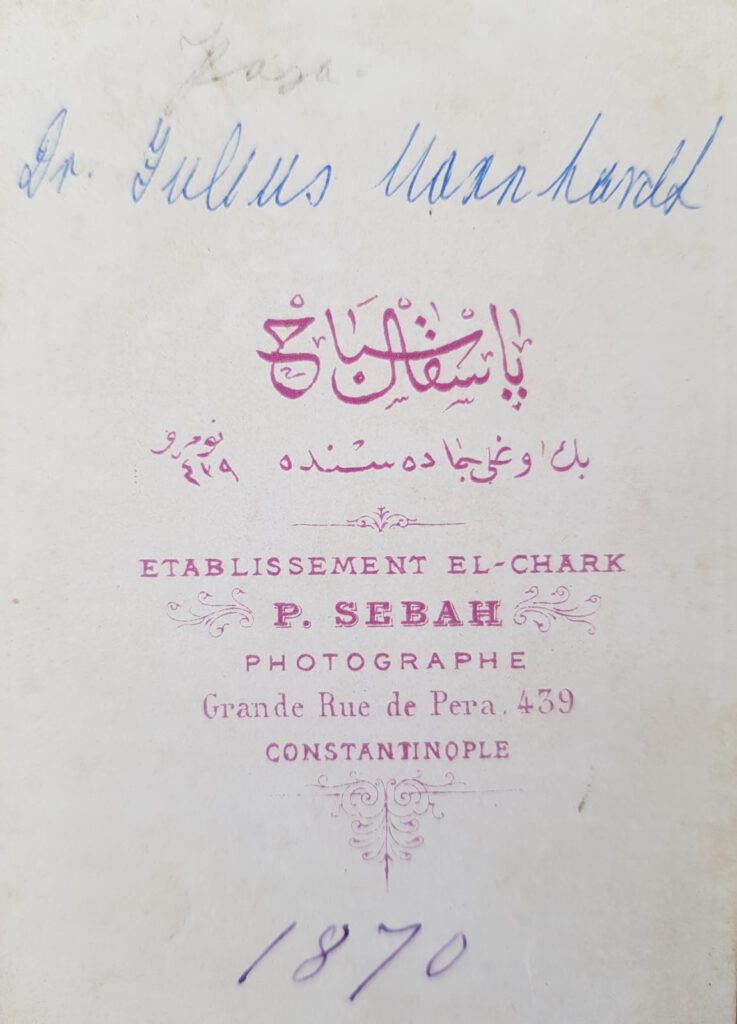 Dr. Julius Mannhardt
پاسقال صباح
بك اوغلی جاده سنده نومرو ٤٣٩
ETABLISSEMENT EL-CHARK
P. SEBAH
PHOTOGRAPHE
Grande Rue de Pera. 439
CONSTANTINOPLE
1870